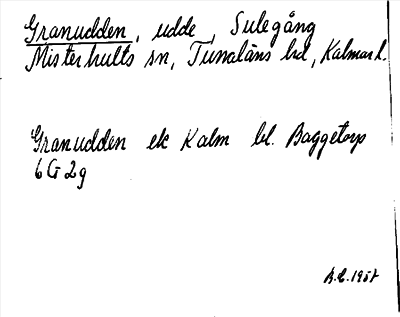 Granudden, udde, Sulegång
Misterhults sn, Tunaläns hd, Kalmar l.
Granudden ek Kalm bl. Baggetorp
6 G 2g